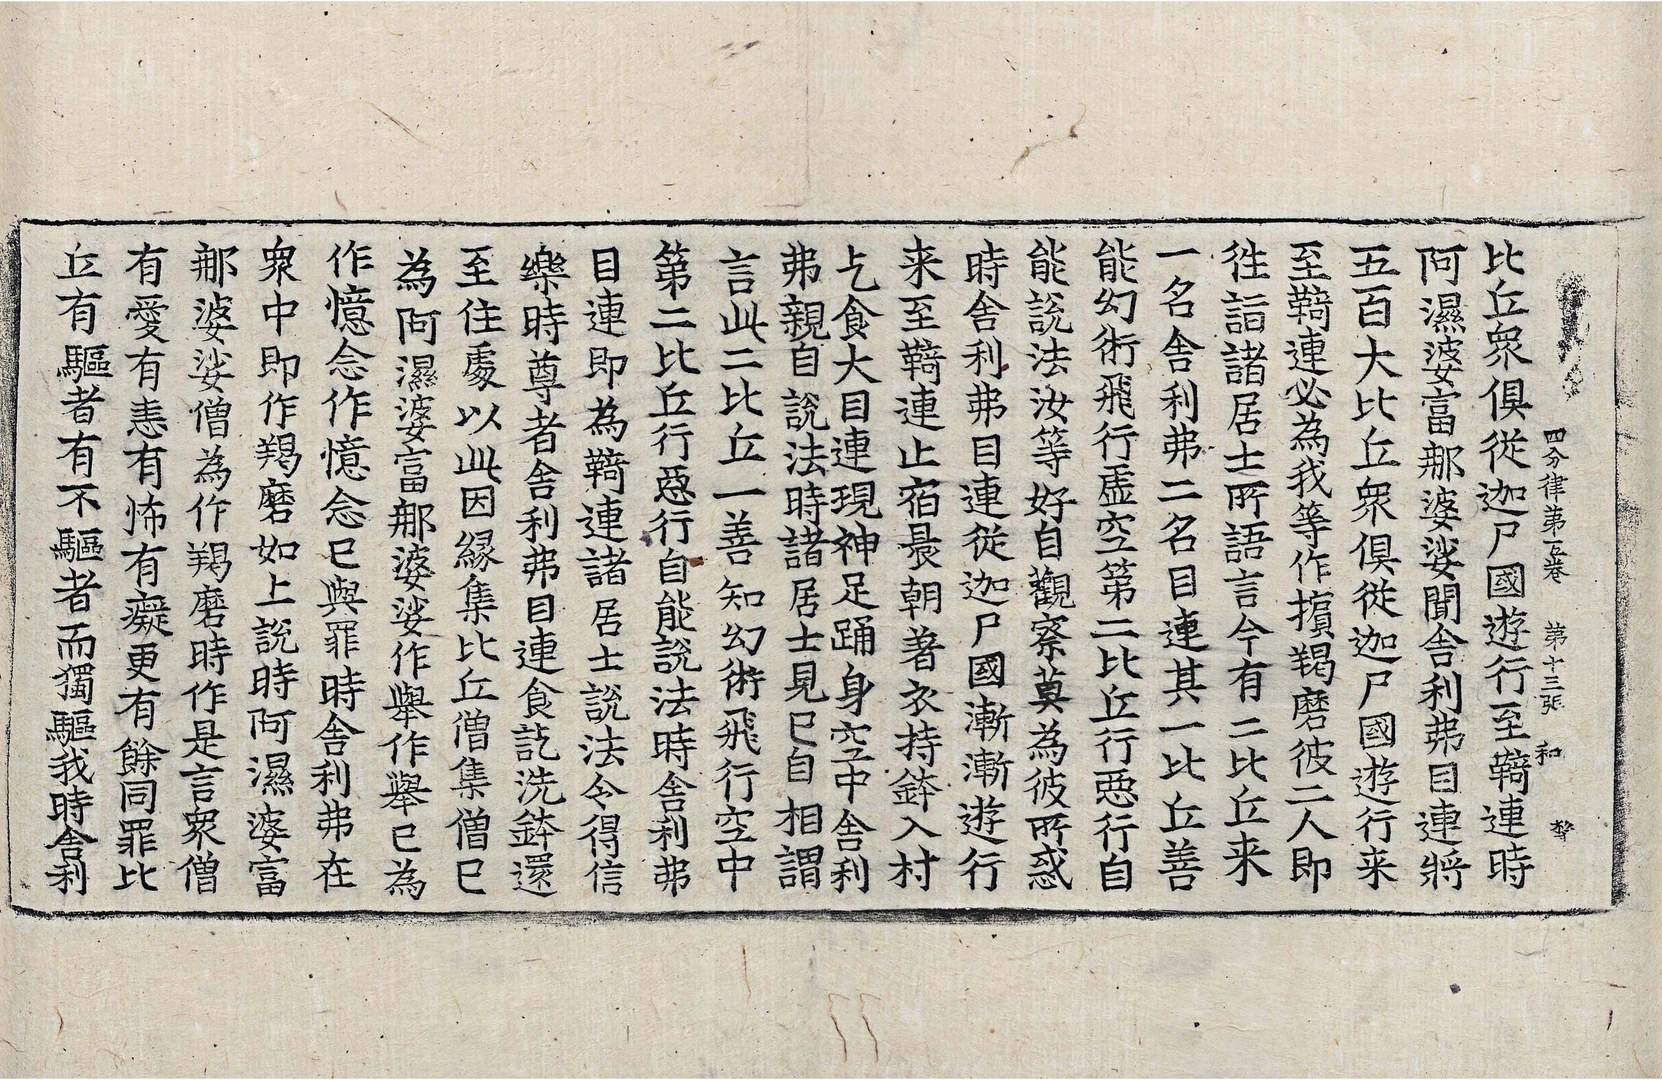 四分律第五卷 第十三張 和
比丘衆俱從迦尸國遊行至鞊連時
阿濕婆富那婆娑聞舍利弗目連將
五百大比丘衆俱從迦尸國遊行来
至鞊連必為我等作擯羯磨彼二人即
徃詣諸居士所語言今有二比丘来
一名舍利弗二名目連其一比丘善
能幻術飛行虛空第二比丘行惡行自
能說法汝等好自觀察莫為彼所惑
時舍利弗目連從迦尸國漸漸遊行
来至鞊連止宿晨朝著衣持鉢入村
乞食大目連現神足踊身空中舍利
弗親自說法時諸居士見已自相謂
言此二比丘一善知幻術飛行空中
第二比丘行惡行自能說法時舍利弗
目連即為鞊連諸居士說法令得信
樂時尊者舍利弗目連食訖洗鉢還
至住處以此因緣集比丘僧集僧已
為阿濕婆富那婆娑作舉作舉已為
作憶念作憶念已與罪時舍利弗在
衆中即作羯磨如上說時阿濕婆富
那婆娑僧為作羯磨時作是言衆僧
有愛有恚有怖有癡更有餘同罪比
丘有驅者有不驅者而獨驅我時舍利